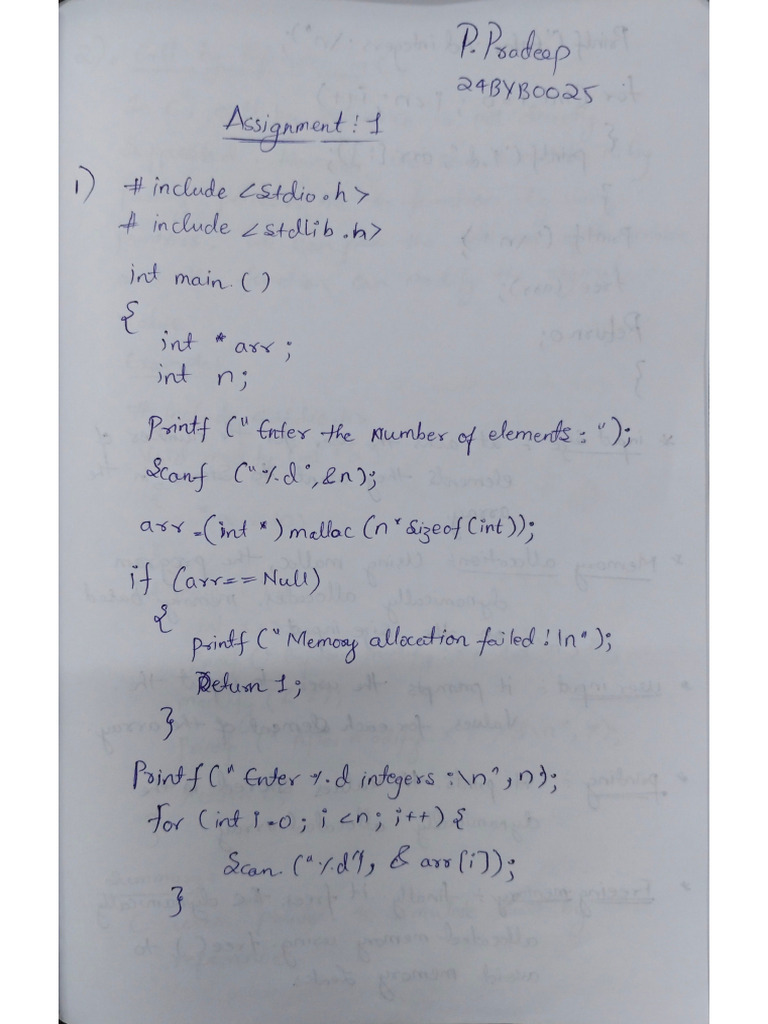 P. Pradeep
24BYB0025
Assignment : 1
1) # include <stdio.h>
# include <stdlib.h>
int main ()
{
int * arr ;
int n;
Printf (" Enter the Number of elements : ");
Scanf ("%d", &n);
arr = (int *) mallac (n * sizeof (int));
if (arr == Null)
{
printf (" Memory allocation failed ! \n");
Return 1;
}
Printf (" Enter %d integers : \n", n);
for (int i=0; i <n; i++) {
Scan ("%d", & arr [i]);
}